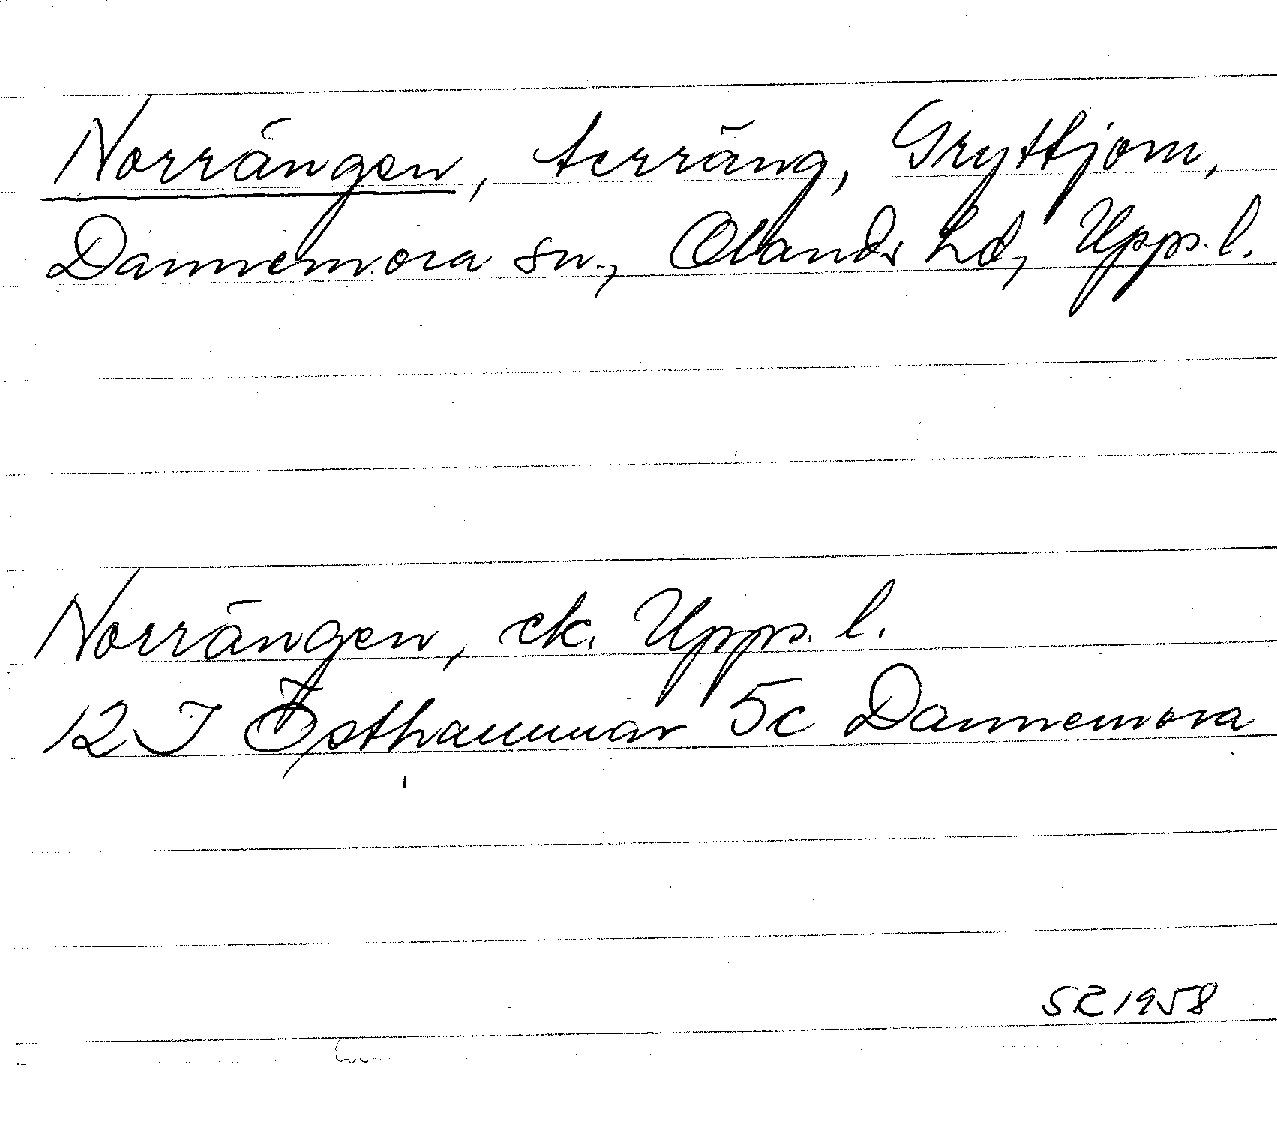 Norrängen, terräng, Gryttjom,
Dannemora sn., Olands hd, Upps. l.
Norrängen, ek. Upps. l.
12 I Östhammar 5c Dannemora
SR 1958